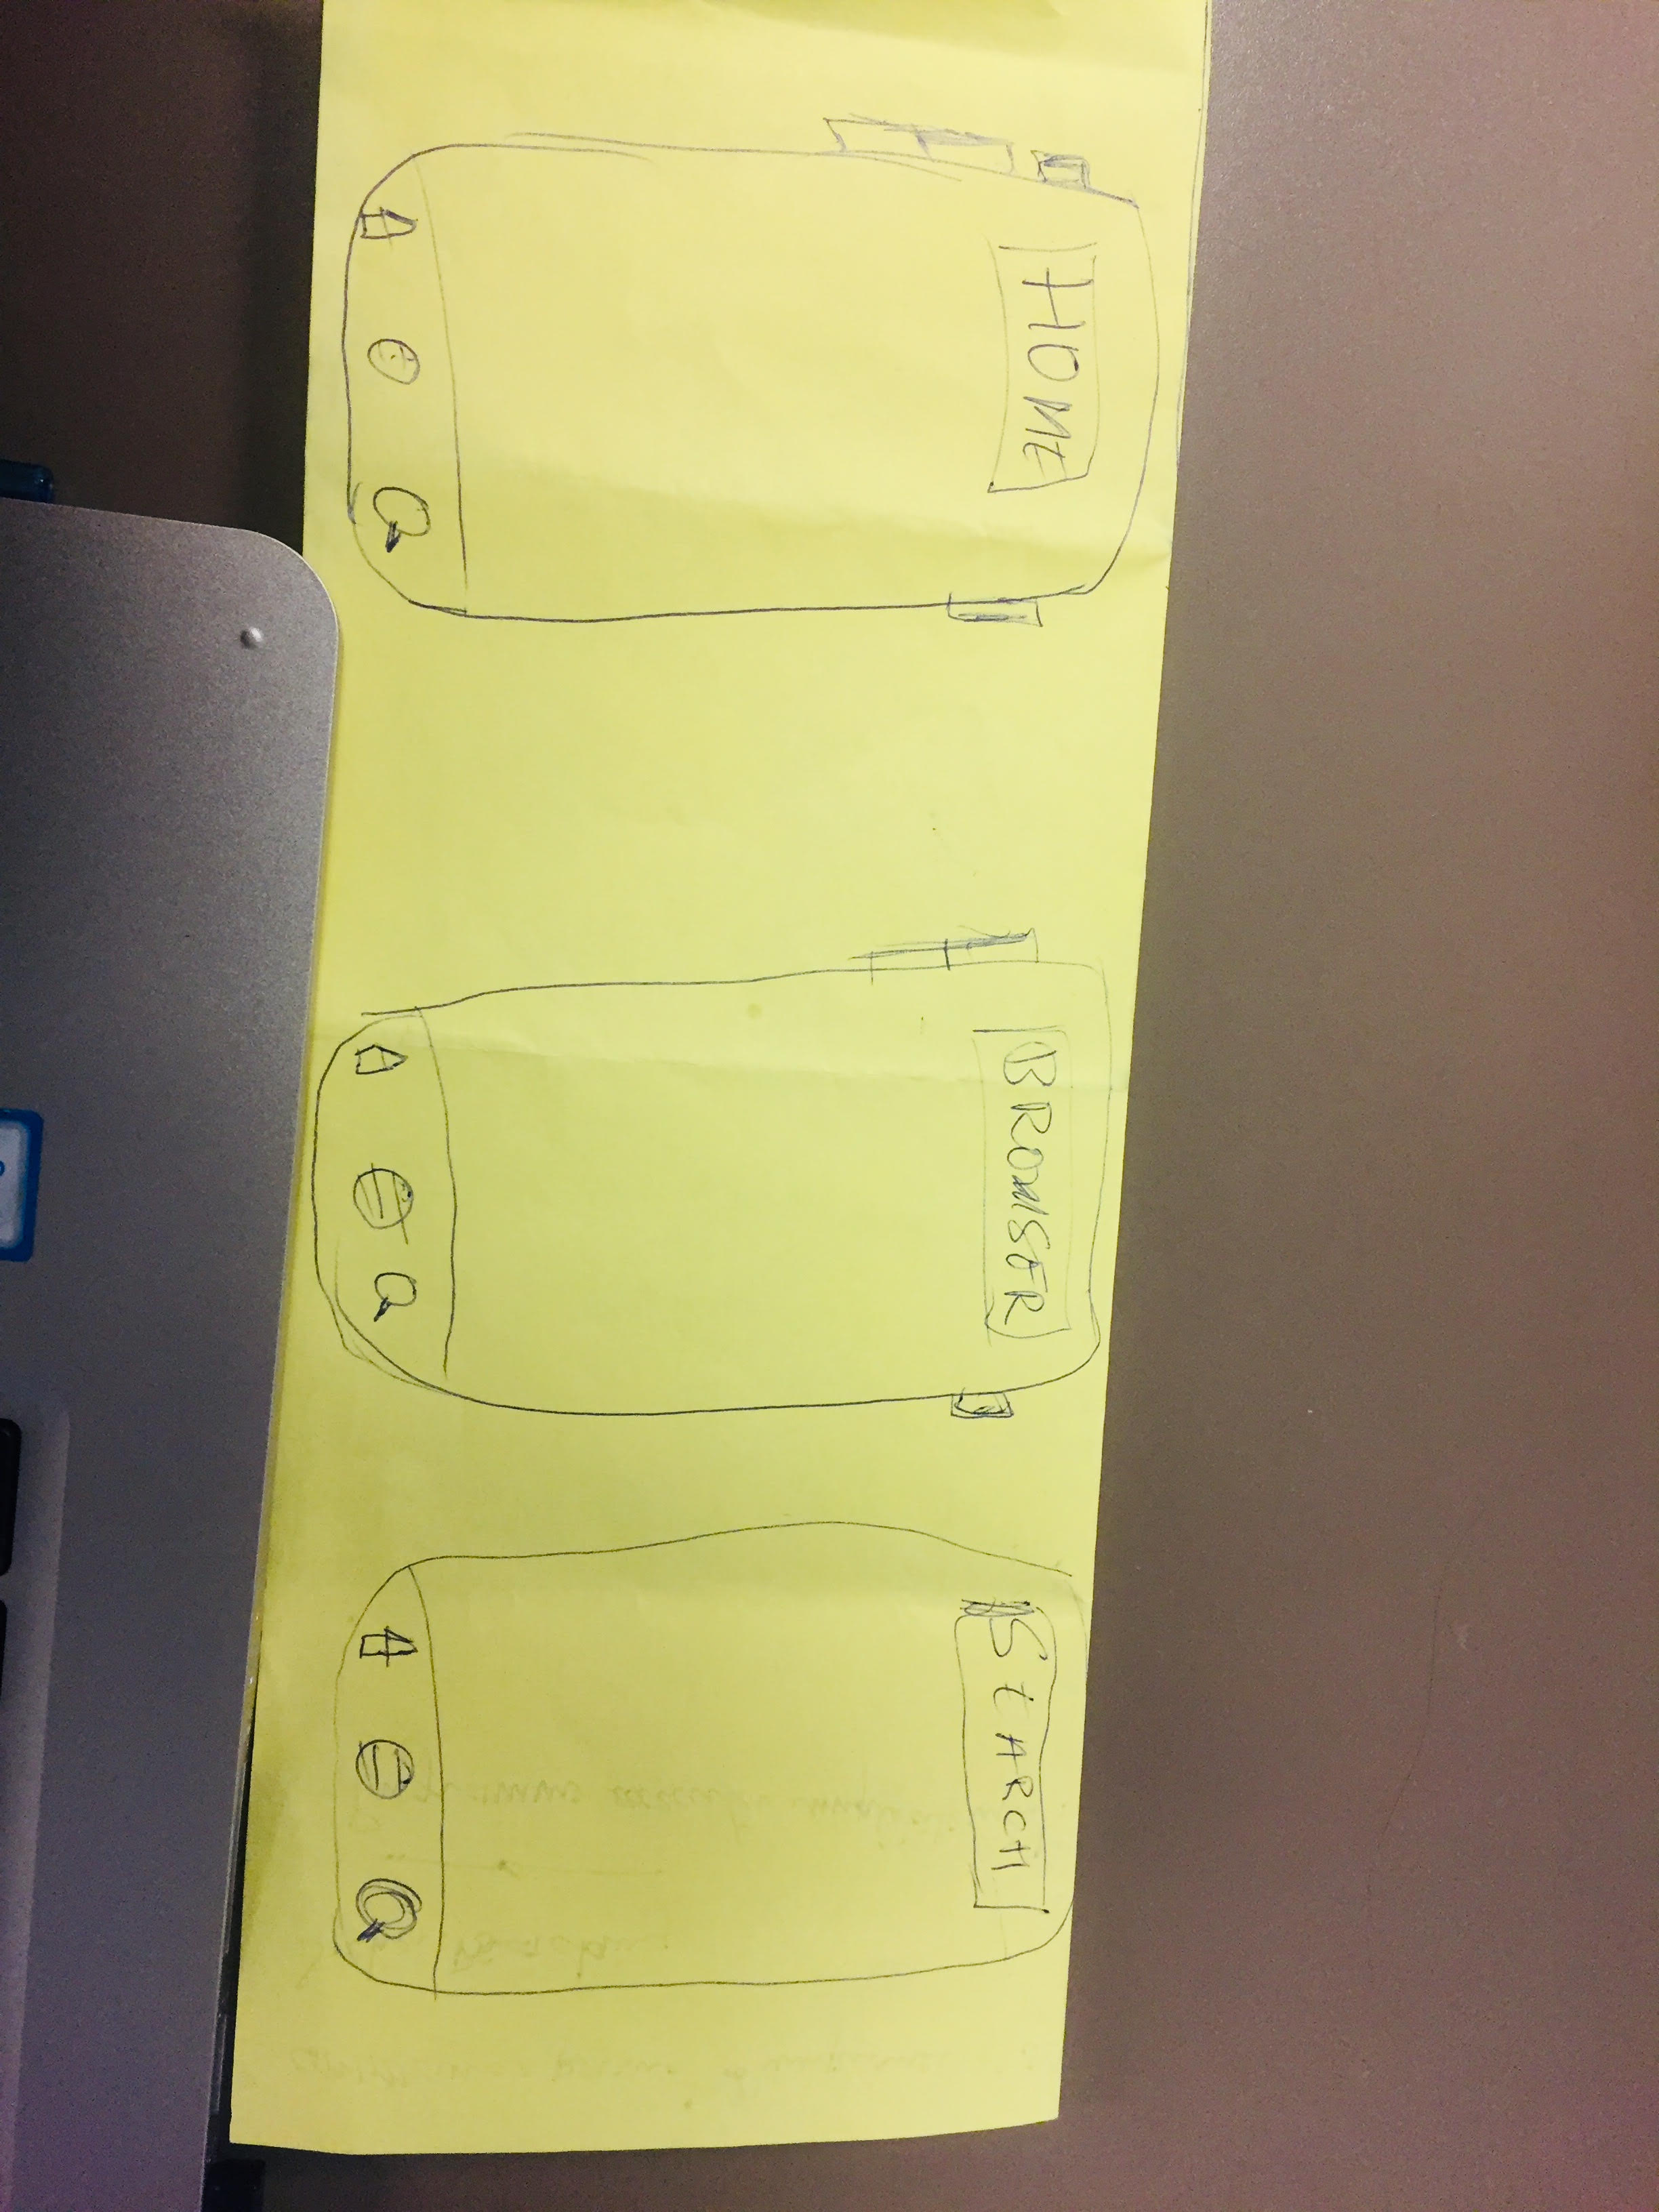 HOME
BROWSER
SEARCH